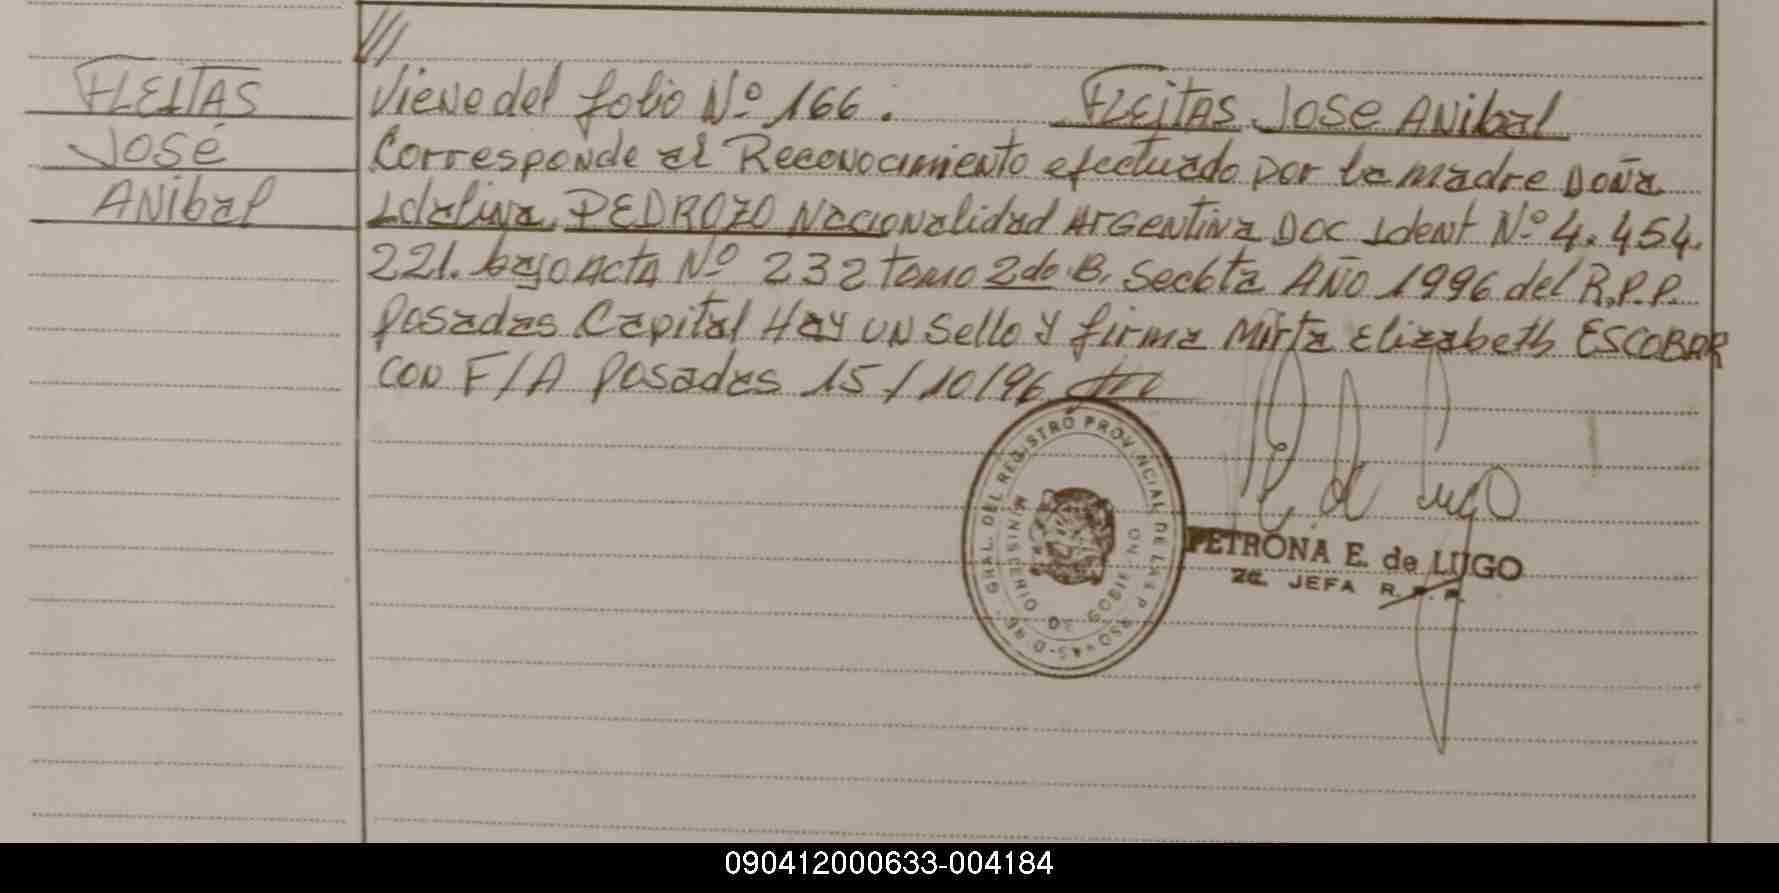 FLEITAS
JOSÉ
ANibal
///
Viene del folio Nº 166. FLEitAS JOSE ANibal
Corresponde al Reconocimiento efectuado por la madre Doña
Idalina PEDROZO Nacionalidad Argentina Doc Ident Nº 4.454.
221. bajo Acta Nº 232 tomo 2do B. Seccta AÑO 1996 del R.P.P.
Posadas Capital Hay UN Sello Y firma Mirta Elizabeth ESCOBAR
CON F/A Posadas 15/10/96
GRAL. DEL REGISTRO PROVINCIAL DE LAS P
MINIS
PETRONA E. de LUGO
2a. JEFA R. P. P.
090412000633-004184